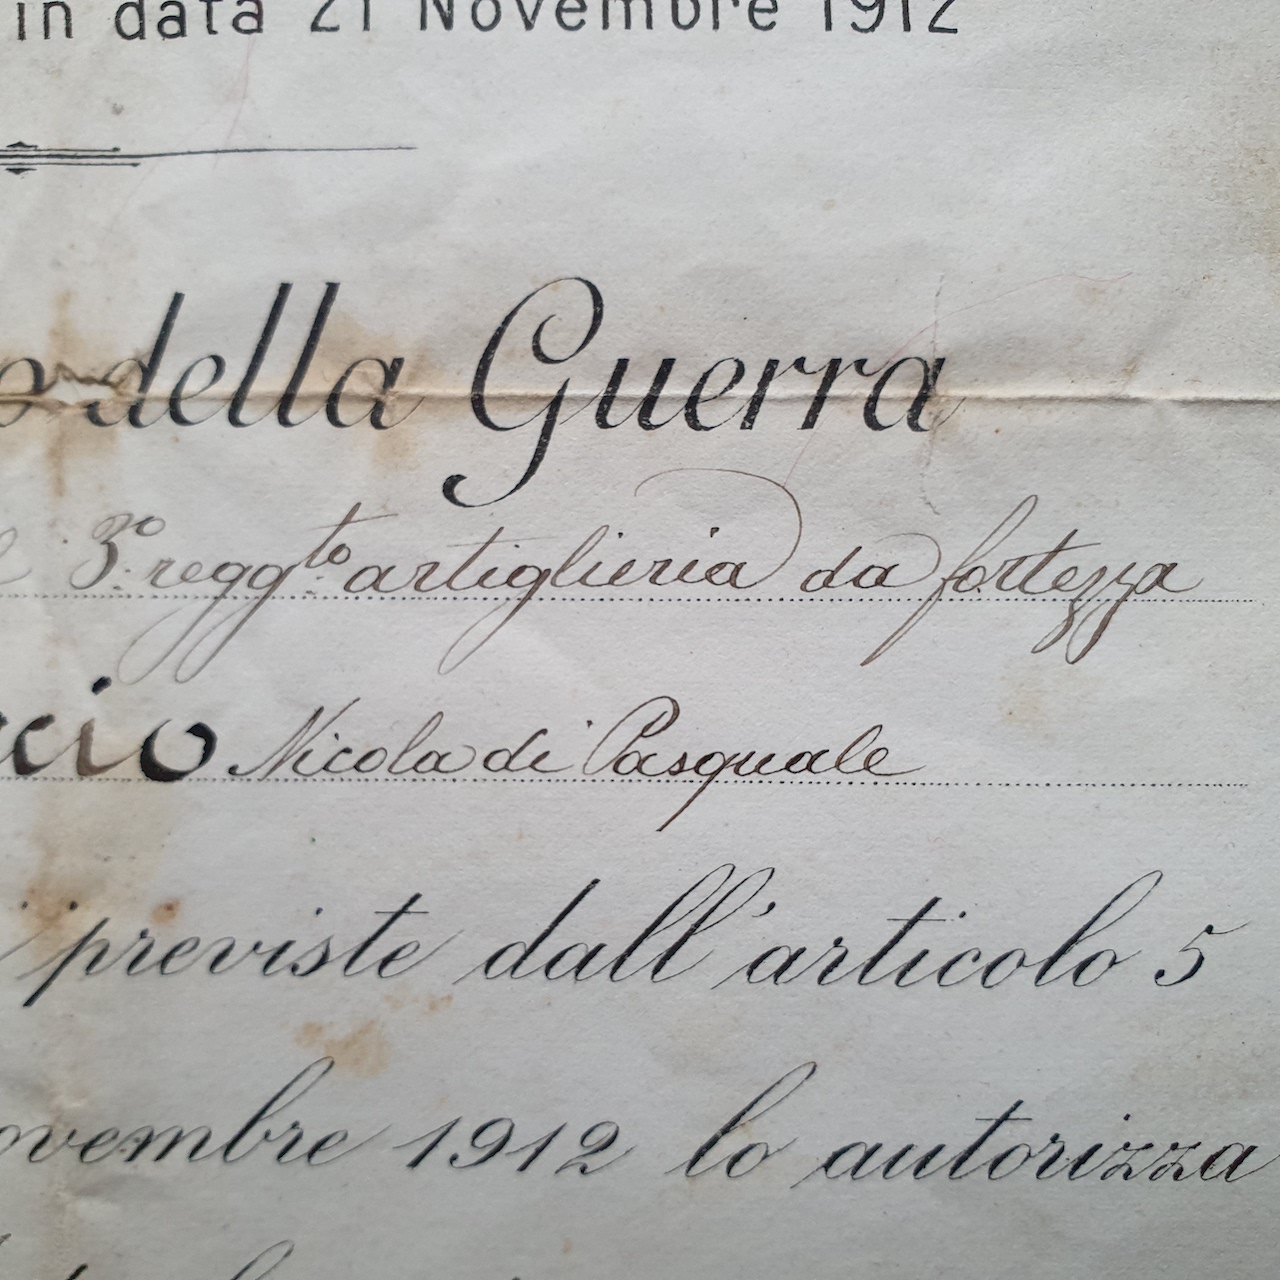 in data 21 Novembre 1912
della Guerra
3º reggto artiglieria da fortezza
Nicola di Pasquale
previste dall'articolo 5
1912 lo autorizza